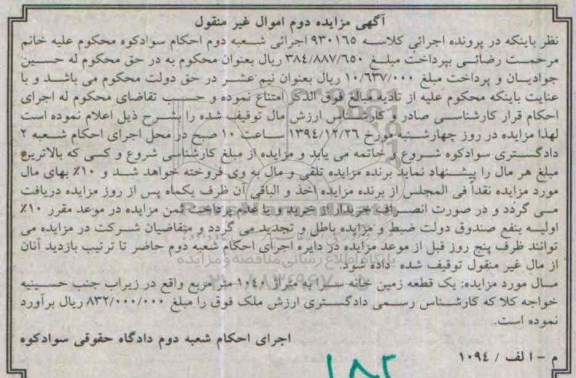 آگهی مزایده دوم اموال غیر منقول
نظر باینکه در پرونده اجرائی کلاسه ۹۳۰۱۶۵ اجرائی شعبه دوم احکام سوادکوه محکوم علیه خانم
مرحمت رضائی بپرداخت مبلغ ۳۸۴/۸۸۷/۶۵۰ ریال بعنوان محکوم به در حق محکوم له حسین
جوادیان و پرداخت مبلغ ۱۰/۶۳۷/۰۰۰ ریال بعنوان نیم عشر در حق دولت محکوم می باشد و با
عنایت باینکه محکوم علیه از تادیه مبلغ فوق الذکر امتناع نموده و حسب تقاضای محکوم له اجرای
احکام قرار کارشناسی صادر و کارشناس ارزش مال توقیف شده را بشرح ذیل اعلام نموده است
لهذا مزایده در روز چهارشنبه مورخ ۱۳۹۴/۱۲/۲۶ ساعت ۱۰ صبح در محل اجرای احکام شعبه ۲
دادگستری سوادکوه شروع و خاتمه می یابد و مزایده از مبلغ کارشناسی شروع و کسی که بالاترین
مبلغ هر مال را پیشنهاد نماید برنده مزایده تلقی و مال به وی فروخته خواهد شد و ۱۰٪ بهای مال
مورد مزایده نقداً فی المجلس از برنده مزایده اخذ و الباقی آن ظرف یکماه پس از روز مزایده دریافت
می گردد و در صورت انصراف خریدار از خرید و یا عدم پرداخت ثمن مزایده در موعد مقرر ۱۰٪
اولیه بنفع صندوق دولت ضبط و مزایده باطل و تجدید می گردد و متقاضیان شرکت در مزایده می
توانند ظرف پنج روز قبل از موعد مزایده در دایره اجرای احکام شعبه دوم حاضر تا ترتیب بازدید آنان
از مال غیر منقول توقیف شده داده شود.
مال مورد مزایده: یک قطعه زمین خانه سرا به متراژ ۱۰۴۰ متر مربع واقع در زیراب جنب حسینیه
خواجه کلا که کارشناس رسمی دادگستری ارزش ملک فوق را مبلغ ۸۳۲/۰۰۰/۰۰۰ ریال برآورد
نموده است.
اجرای احکام شعبه دوم دادگاه حقوقی سوادکوه
م - الف / ۱۰۹۴
۱۸۲